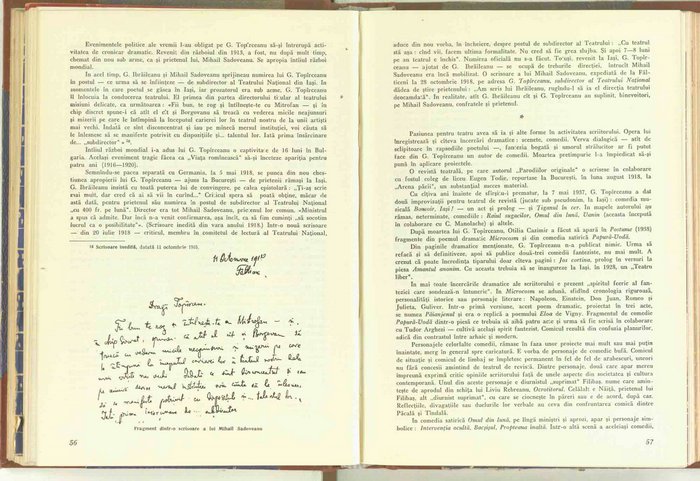 Evenimentele politice ale vremii l-au obligat pe G. Topîrceanu să-și întrerupă acti-
vitatea de cronicar dramatic. Revenit din războiul din 1913, a fost, nu după mult timp,
chemat din nou sub arme, ca și prietenul lui, Mihail Sadoveanu. Se apropia întîiul război
mondial.
În acel timp, G. Ibrăileanu și Mihail Sadoveanu sprijineau numirea lui G. Topîrceanu
în postul — ce urma să se înființeze — de subdirector al Teatrului Național din Iași. În
momentele în care poetul se găsea în Iași, iar prozatorul era sub arme, G. Topîrceanu
îl înlocuia la conducerea teatrului. El primea din partea directorului titular al teatrului
misiuni delicate, ca următoarea : «Fii bun, te rog și întîlnește-te cu Mitrofan — și în
chip discret spune-i că atît el cît și Borgovan să treacă cu vederea micile neajunsuri
și mizerii pe care le întîmpină la începutul carierei lor în teatrul nostru de la unii artiști
mai vechi. Îndată ce sînt disconsenturat și sau pe mînecă mersul instituției, voi căuta să
le înlesnesc să se manifeste potrivit cu dispozițiile și... talentul lor. Iată prima însărcinare
de... „subdirector" » ¹⁸.
Întîiul război mondial i-a adus lui G. Topîrceanu o captivitate de 16 luni în Bul-
garia. Același eveniment tragic făcea ca „Viața românească" să-și înceteze apariția pentru
patru ani (1916—1920).
Semnîndu-se pacea separată cu Germania, la 5 mai 1918, se punea din nou ches-
tiunea apropierii lui G. Topîrceanu — ajuns la București — de prietenii rămași la Iași.
G. Ibrăileanu insistă cu toată puterea lui de convingere, pe calea epistolară : „Ți-aș scrie
mai mult, dar cred că ai să vii în curînd..." Criticul spera să poată obține, măcar de
astă dată, pentru prietenul său numirea în postul de subdirector al Teatrului Național
„cu 400 fr. pe lună". Director era tot Mihail Sadoveanu, prieten al lor comun. «Ministrul
a spus că admite. Dar încă n-a venit confirmarea, așa încît, ca să fim cuminți „să socotim
lucrul ca o posibilitate". (Scrisoare inedită din vara anului 1918.) Într-o nouă scrisoare
— din 20 iulie 1918 — criticul, membru în comitetul de lectură al Teatrului Național,
¹⁸ Scrisoare inedită, datată 11 octombrie 1915.
11 Octomvrie 1915
Fălticeni
Dragă Topîrcene,
Fii bun te rog și întîlnește-te cu Mitrofan — și
în chip discret spune-i că atît el cît și Borgovan să
treacă cu vederea micile neajunsuri și mizerii pe care
le întîmpină la începutul carierei lor în teatrul nostru de la
unii artiști mai vechi. Îndată ce
mersul instituției, voi căuta să le înlesnesc
să se manifeste potrivit cu dispozițiile și... talentul lor.
Iată prima însărcinare de... subdirector
Fragment dintr-o scrisoare a lui Mihail Sadoveanu
56
aduce din nou vorba, în încheiere, despre postul de subdirector al Teatrului : „Cu teatrul
stă așa : cînd vii, facem ultima formalitate. Nu cred să fie grea slujba. Și apoi 7—8 luni
pe an teatrul e închis". Numirea oficială nu s-a făcut. Totuși, revenit la Iași, G. Topîr-
ceanu — ajutat de G. Ibrăileanu — se ocupă de treburile direcției, întrucît Mihail
Sadoveanu era încă mobilizat. O scrisoare a lui Mihail Sadoveanu, expediată de la Făl-
ticeni la 28 octombrie 1918, pe adresa G. Topîrceanu, subdirector al Teatrului Național
dădea de știre prietenului : „Am scris lui Ibrăileanu, rugîndu-l să ia el direcția teatrului
deocamdată". În realitate, atît G. Ibrăileanu cît și G. Topîrceanu au suplinit, binevoitori,
pe Mihail Sadoveanu, confratele și prietenul.
*
Pasiunea pentru teatru avea să ia și alte forme în activitatea scriitorului. Opera lui
înregistrează și cîteva încercări dramatice : scenete, comedii. Verva dialogică — atît de
sclipitoare în rapsodiile poetului —, fantezia bogată și umorul strălucitor ar fi putut
face din G. Topîrceanu un autor de comedii. Moartea pretimpurie l-a împiedicat să-și
pună în aplicare proiectele.
O revistă teatrală, pe care autorul „Parodiilor originale" o scrisese în colaborare
cu fostul coleg de liceu Eugen Todie, reputase la București, la luna august 1913, la
„Arena păcii", un substanțial succes material.
Cu cîțiva ani înainte de sfîrșitu-i prematur, la 7 mai 1937, G. Topîrceanu a dat
două improvizații pentru teatrul de revistă (jucate sub pseudonim, la Iași) : comedia mu-
zicală Bonsoir, Iași! — un act și prolog — și Țiganul în cer. În mapele autorului au
rămas, neterminate, comediile : Raiul sugacilor, Omul din lună, Vanin (aceasta începută
în colaborare cu C. Manolache) și altele.
După moartea lui G. Topîrceanu, Otilia Cazimir a făcut să apară în Postume (1938)
fragmente din poemul dramatic Microcosm și din comedia satirică Papură-Vodă.
Din paginile dramatice menționate, G. Topîrceanu n-a publicat nimic. Urma să
refacă și să definitiveze, apoi să publice două-trei comedii fanteziste, nu mai mult. A
crezut că poate încredința tiparului doar cîteva pagini : Jos cortina, prolog în versuri la
piesa Amantul anonim. Cu aceasta trebuia să se inaugureze la Iași, în 1928, un „Teatru
liber".
În mai toate încercările dramatice ale scriitorului e prezent „spiritul feeric al fan-
teziei care sondează-n întuneric". În Microcosm se adună, sfidînd cronologia riguroasă,
personalități istorice sau personaje literare : Napoleon, Einstein, Don Juan, Romeo și
Julieta, Guliver. Într-o primă versiune, acest poem dramatic, proiectat în trei acte,
se numea Păianjenul și era o replică a poemului Eloa de Vigny. Fragmentul de comedie
Papură-Vodă dintr-o piesă ce trebuia să aibă patru acte și urma să fie scrisă în colaborare
cu Tudor Arghezi — cultivă același spirit fantezist. Comicul rezultă din confuzia planurilor,
adică din contrastul între arhaic și modern.
Personajele celorlalte comedii, rămase în faza unor proiecte mai mult sau mai puțin
înaintate, merg în general spre caricatură. E vorba de personaje de comedie bufă. Comicul
de situație și comicul de limbaj se împletesc permanent în fel de fel de arabescuri, uneori
nu fără concesii amintind de teatrul de revistă. Dintre personaje, două care apar mereu
împreună exprimă critic opiniile scriitorului față de unele aspecte din societatea și cultura
contemporană. Unul din aceste personaje e diurnistul „suprimat" Filibaș, nume care amin-
tește de aprodul din schița lui Liviu Rebreanu, Ocrotitorul. Celălalt e Năiță, prietenul lui
Filibaș, alt „diurnist suprimat", cu care se ciocnește în păreri sau e de acord, după caz.
Reflecțiile, divagațiile sau duelurile lor verbale au ceva din confruntarea comică dintre
Păcală și Tîndală.
În comedia satirică Omul din lună, pe lîngă miniștri și aprozi, apar și personaje sim-
bolice : Intervenția ocultă, Bacșișul, Proșteana insolită. Într-o altă scenă a aceleiași comedii,
57